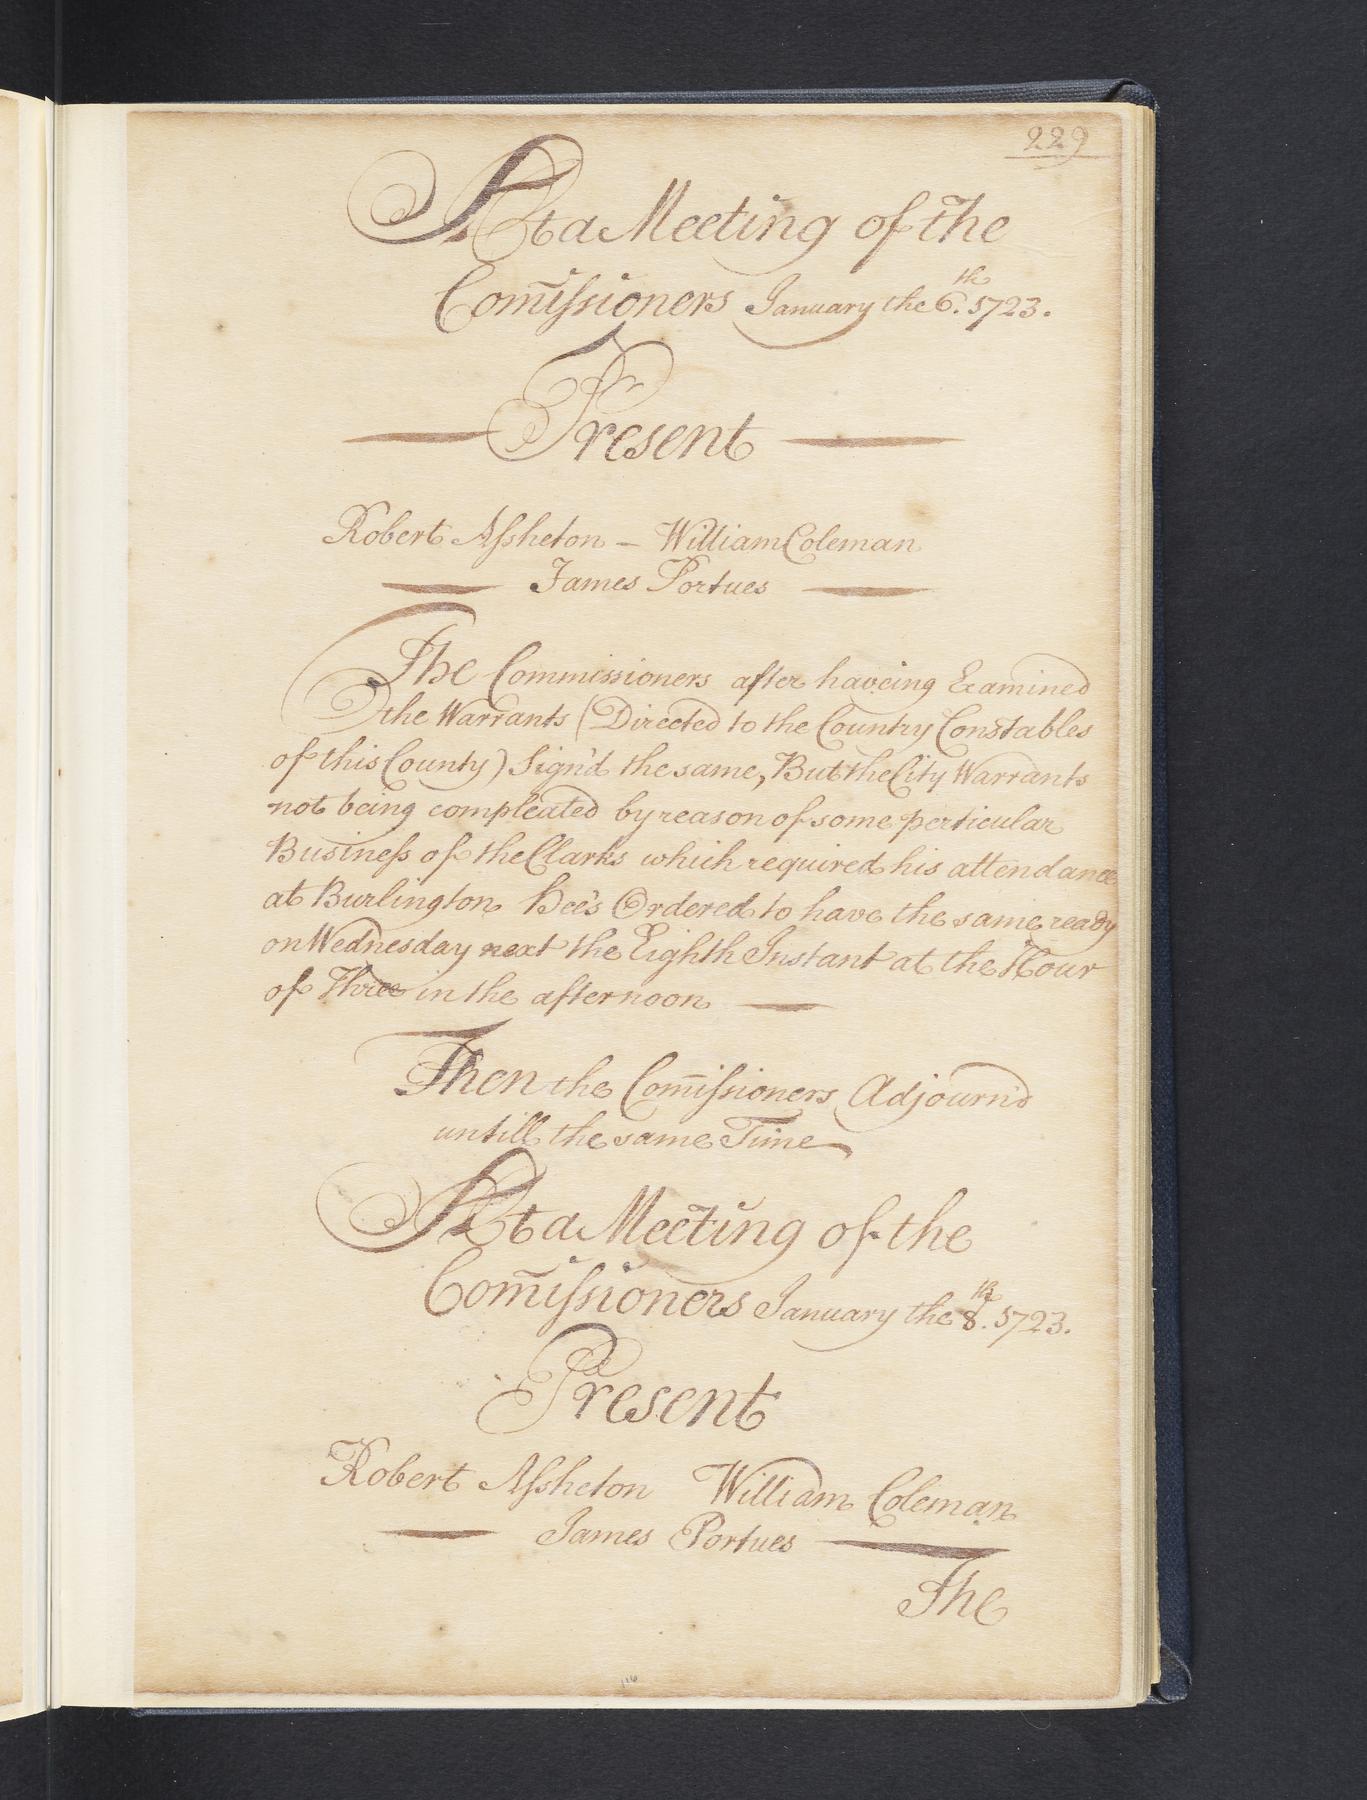 229
At a Meeting of the
Com̃issioners January the 6.th 1723.
Present
Robert Assheton — William Coleman
James Portues
The Commissioners after haveing Examined
the Warrants (Directed to the Country Constables
of this County) Sign'd the same, But the City Warrants
not being compleated by reason of some perticular
Business of the Clarks which required his attendance
at Burlington Hee's Ordered to have the same ready
on Wednesday next the Eighth Instant at the Hour
of Three in the afternoon
Then the Com̃issioners Adjourn'd
untill the same Time
At a Meeting of the
Com̃issioners January the 8.th 1723.
Present
Robert Assheton William Coleman
James Portues
The
116